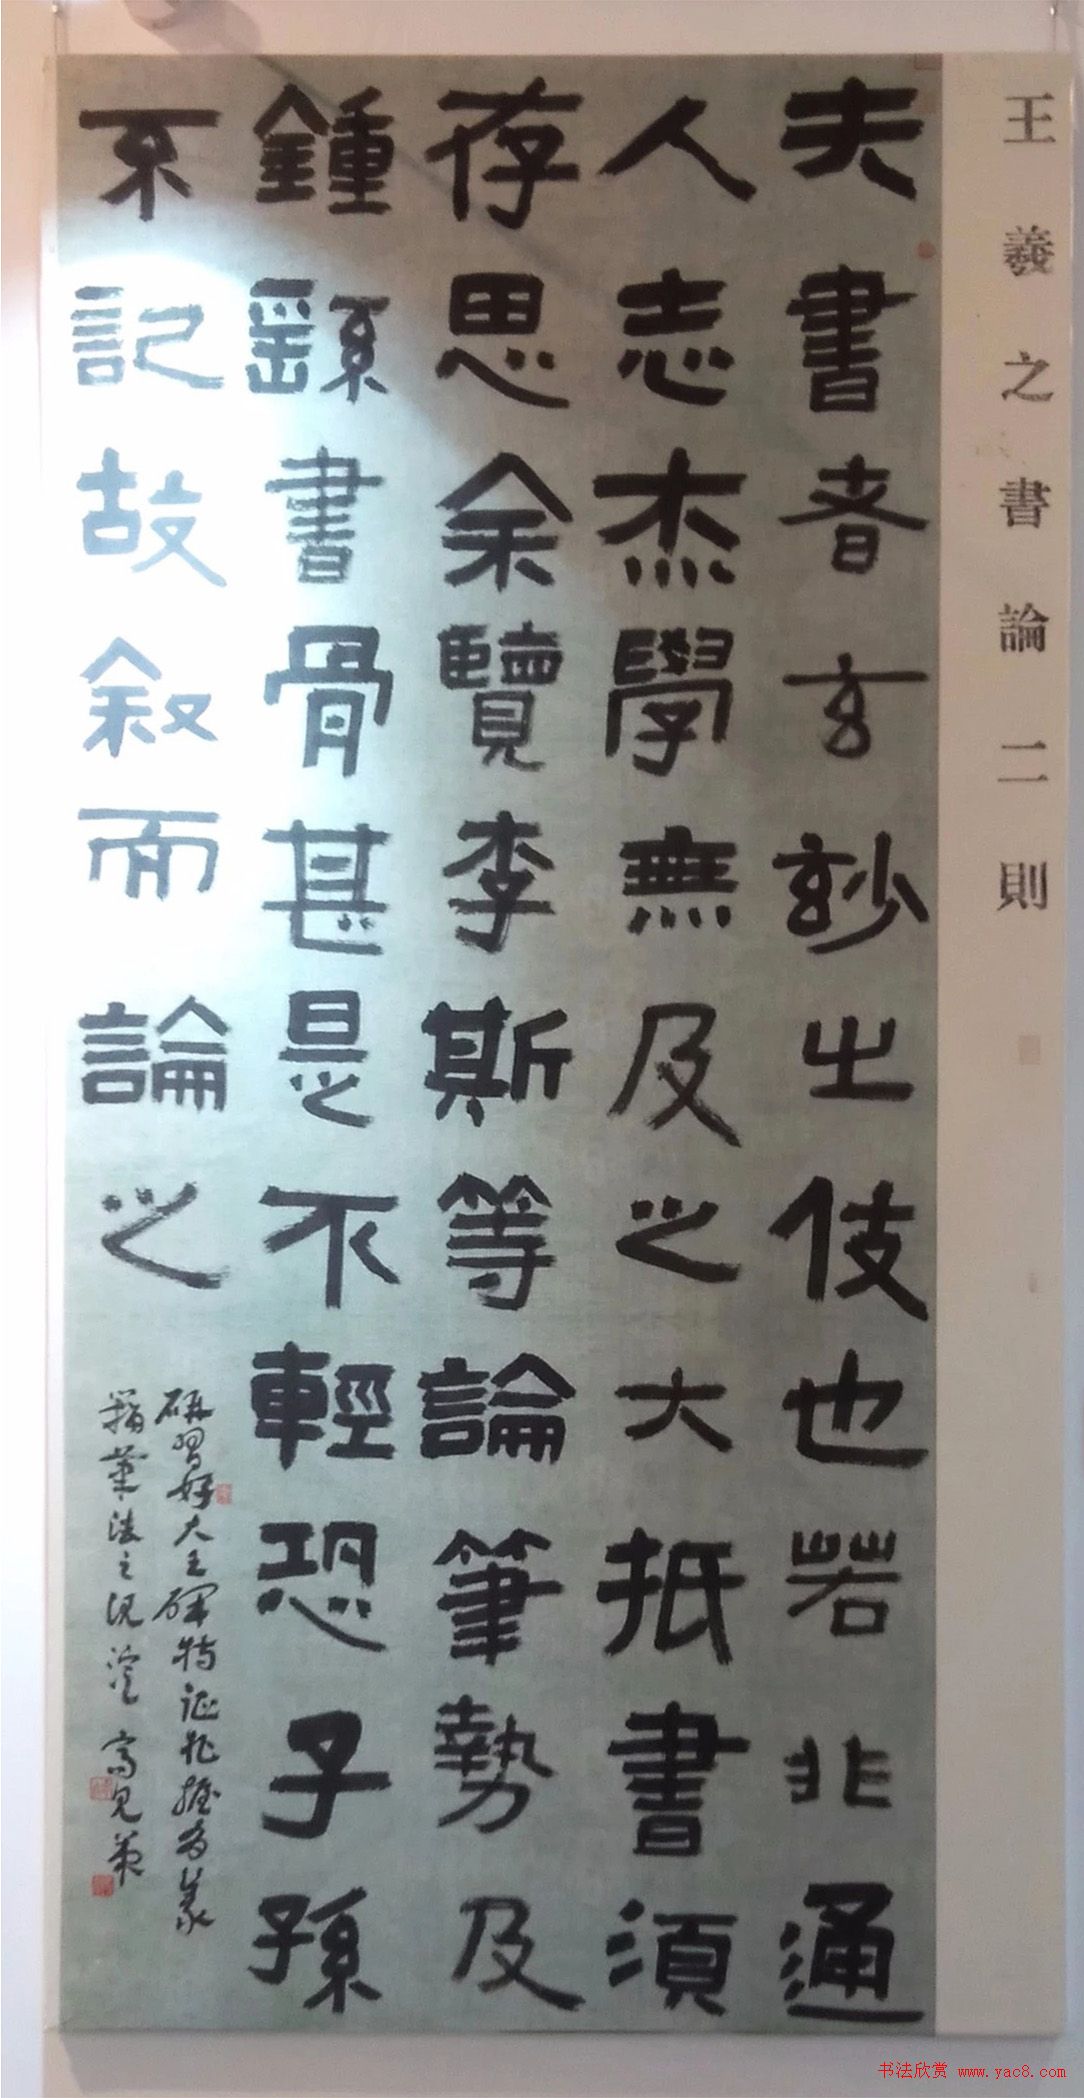 王羲之書論二則
夫書者玄妙之伎也若非通
人志杰學無及之大抵書須
存思余覽李斯等論筆勢及
鍾繇書骨甚是不輕恐子孫
不記故敘而論之
研習好大王碑特征把握
法之況
書法欣赏 www.yac8.com